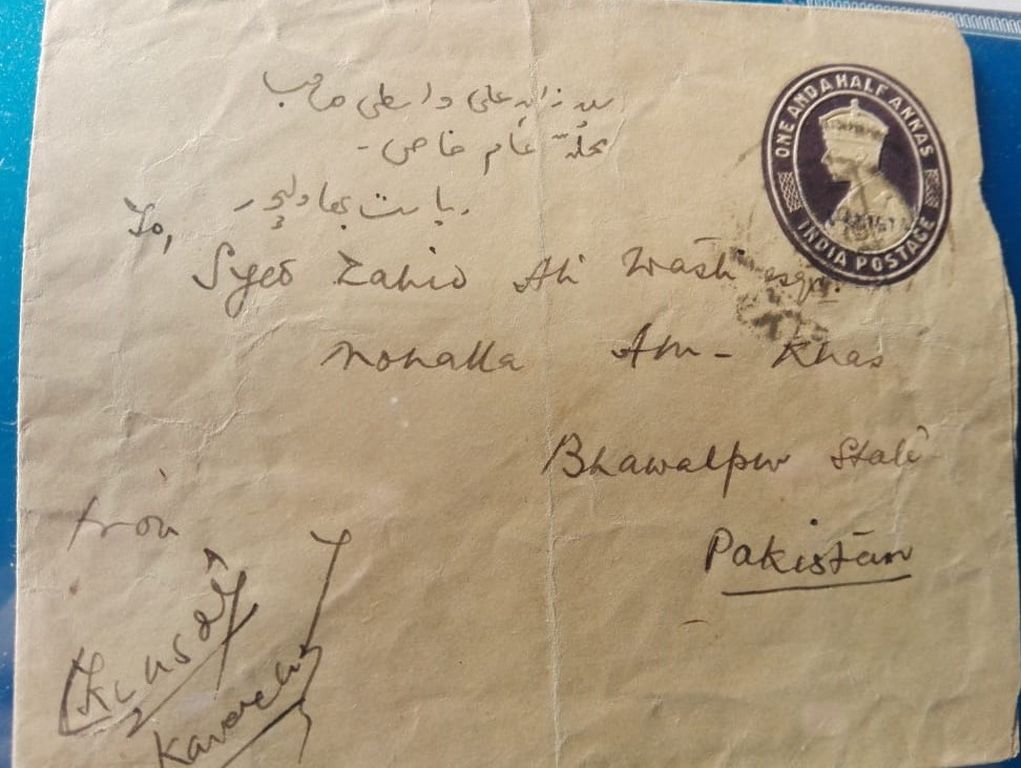 سید زاہد علی واسطی صاحب
محلہ عام خاص -
ریاست بھاولپور
ONE AND A HALF ANNAS
INDIA POSTAGE
To,
Syed Zahid Ali Wasti esqr.
Mohalla Am - Khas
Bhawalpur State
Pakistan
from
Karachi